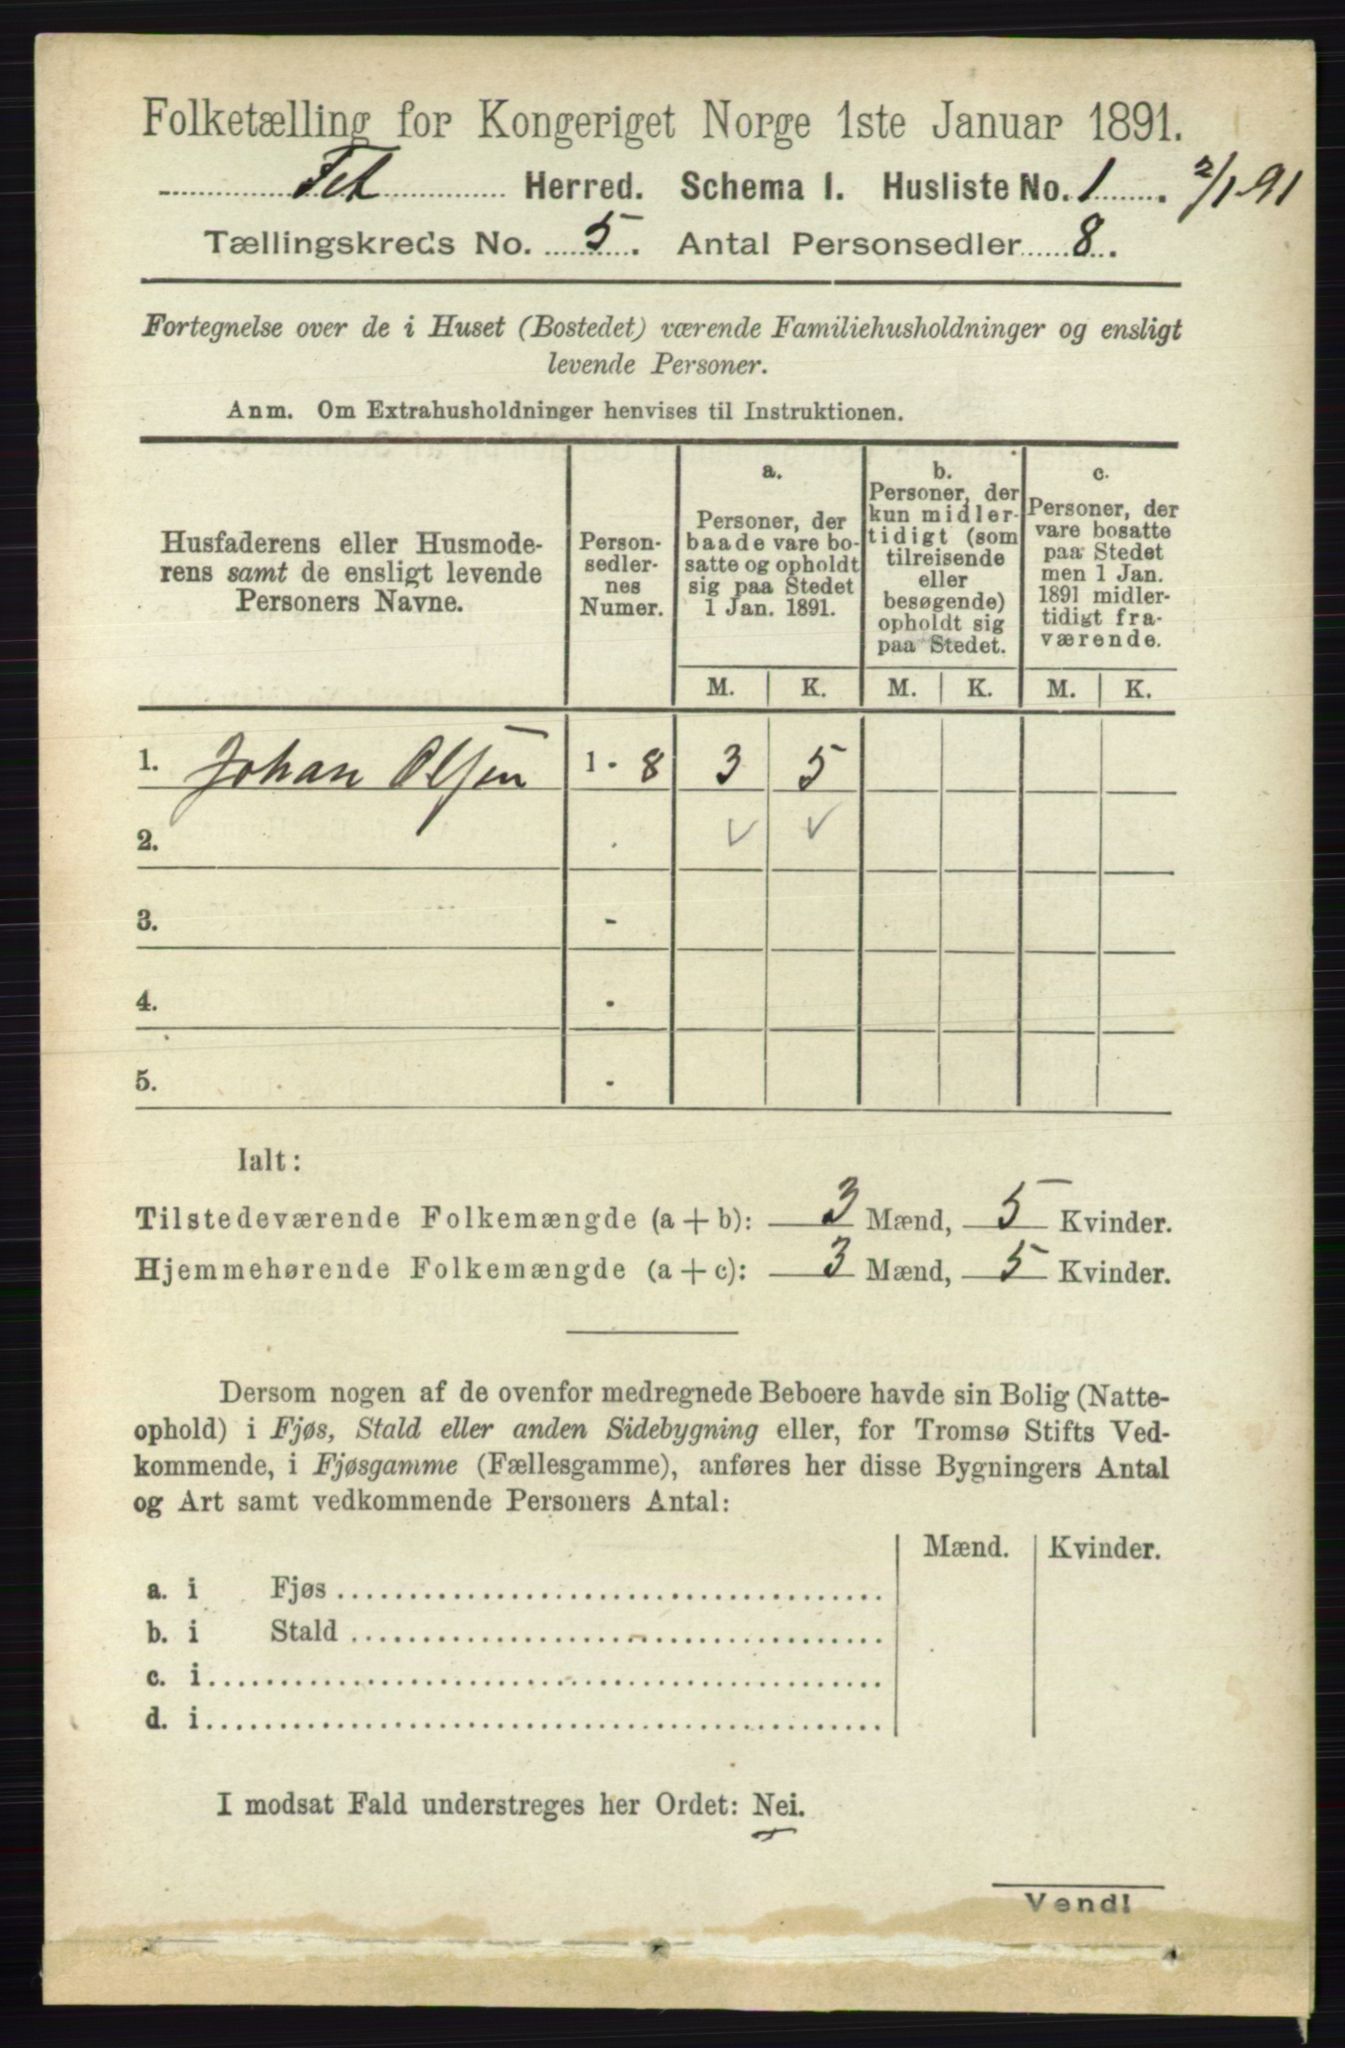 Folketælling for Kongeriget Norge 1ste Januar 1891.
Fet Herred. Schema I. Husliste No. 1. 2/1 91
Tællingskreds No. 5. Antal Personsedler 8.
Fortegnelse over de i Huset (Bostedet) værende Familiehusholdninger og ensligt
levende Personer.
Anm. Om Extrahusholdninger henvises til Instruktionen.
Husfaderens eller Husmode-
rens samt de ensligt levende
Personers Navne.
Person-
sedler-
nes
Numer.
a.
Personer, der
baade vare bo-
satte og opholdt
sig paa Stedet
1 Jan. 1891.
b.
Personer, der
kun midler-
tidigt (som
tilreisende
eller
besøgende)
opholdt sig
paa Stedet.
c.
Personer, der
vare bosatte
paa Stedet
men 1 Jan.
1891 midler-
tidigt fra-
værende.
M. K. M. K. M. K.
1. Johan Olsen 1 - 8 3 5
2. . ✓ ✓
3. -
4. .
5. .
Ialt:
Tilstedeværende Folkemængde (a + b): 3 Mænd, 5 Kvinder.
Hjemmehørende Folkemængde (a + c): 3 Mænd, 5 Kvinder.
Dersom nogen af de ovenfor medregnede Beboere havde sin Bolig (Natte-
ophold) i Fjøs, Stald eller anden Sidebygning eller, for Tromsø Stifts Ved-
kommende, i Fjøsgamme (Fællesgamme), anføres her disse Bygningers Antal
og Art samt vedkommende Personers Antal:
Mænd. Kvinder.
a. i Fjøs
b. i Stald
c. i
d. i
I modsat Fald understreges her Ordet: Nei.
Vend!